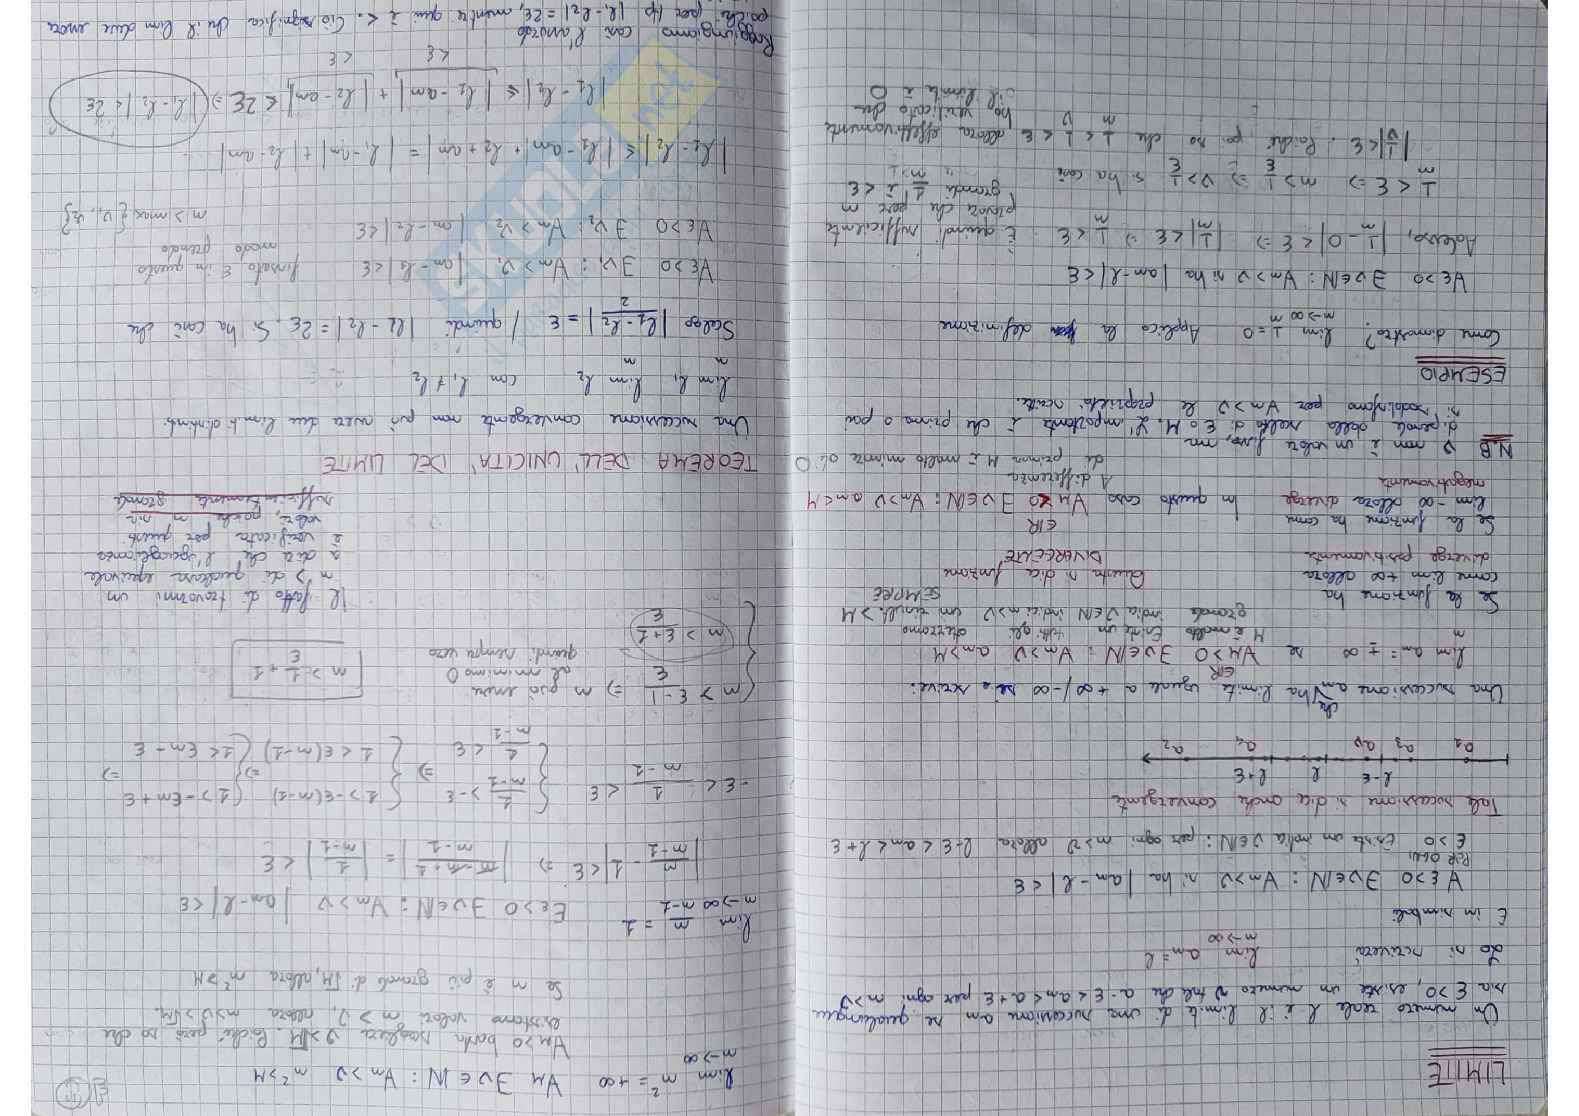 LIMITE
Un numero reale l è il limite di una successione an se, qualunque
sia ε>0, esiste un numero ν tale che a-ε<an<a+ε per ogni n>ν
Lo si scriverà lim an = l
n→∞
E in simboli
∀ε>0 ∃ν∈N : ∀n>ν si ha |an-l|<ε
PER OGNI
ε>0 Esiste un indice ν∈N : per ogni n>ν allora l-ε<an<l+ε
Tale successione si dice anche convergente
l-ε l l+ε
a1 a3 aν a4 a2
Una successione an che ha limite uguale a +∞/-∞ se si scrive:
lim an = ± ∞ se ∀M>0 ∃ν∈N : ∀n>ν an>M
n
∈IR
M è molto grande
Esiste un indice ν∈N
tutti gli indici n>ν
otterranno un risult. >M
SEMPRE
Se la funzione ha
come lim +∞ allora
diverge positivamente
Questa si dice funzione
DIVERGENTE
Se la funzione ha come
lim -∞ allora diverge
negativamente
In questo caso ∀M<0 ∃ν∈N : ∀n>ν an<M
∈IR
A differenza
di prima M è molto minore di 0
N.B ν non è un valore fisso, ma
dipende dalla scelta di ε o M. L'importante è che prima o poi
si soddisfano per ∀n>ν le proprietà scritte.
ESEMPIO
Come dimostro? lim 1/n = 0 Applico la definizione
n→∞
∀ε>0 ∃ν∈N : ∀n>ν si ha |an-l|<ε
Adesso, |1/n - 0|<ε ⇒ |1/n|<ε ⇒ 1/n<ε
È quindi sufficiente
provare che per n
grandi 1/n è <ε
1/n<ε ⇒ n>1/ε ⇒ ν>1/ε si ha così
|1/ν|<ε. Poiché poi so che 1/n<1/ν<ε allora effettivamente
ho verificato che
il limite è 0
lim n² = +∞ ∀M ∃ν∈N : ∀n>ν n²>M
n→∞
∀M>0 basta scegliere ν>√M. Poiché però so che
esistono valori n>ν, allora n>ν>√M.
Se n è più grande di √M, allora n²>M
lim n/(n-1) = 1 ∀ε>0 ∃ν∈N : ∀n>ν |an-l|<ε
n→∞
|n/(n-1) - 1|<ε ⇒ |(n-n+1)/(n-1)| = |1/(n-1)|<ε
-ε<1/(n-1)<ε { 1/(n-1)>-ε ⇒ { 1>-ε(n-1) ⇒ { 1>-εn+ε ⇒
{ 1/(n-1)<ε { 1<ε(n-1) { 1<εn-ε
{ n>(ε-1)/ε ⇒ n può essere
al minimo 0
quindi sempre vero
{ n>(ε+1)/ε
n>1/ε+1
Il fatto di trovarmi un
n> di qualcosa equivale
a dire che l'uguaglianza
è verificata per questi
valori, poiché n sia
sufficientemente grande
TEOREMA DELL'UNICITÀ DEL LIMITE
Una successione convergente non può avere due limiti distinti.
lim l1 lim l2 con l1≠l2
n n
Scelgo |l1-l2|/2 = ε / quindi |l1-l2|=2ε. Si ha così che
∀ε>0 ∃ν1 : ∀n>ν1 |an-l1|<ε
∀ε>0 ∃ν2 : ∀n>ν2 |an-l2|<ε
fissato ε in questo
modo prendo
n>max{ν1,ν2}
|l1-l2|≤|l1-an+l2+an| = |l1-an|+|l2-an|
|l1-l2|≤|l1-an|+|l2-an|<2ε ⇒ |l1-l2|<2ε
<ε <ε
Raggiungiamo così l'assurdo
poiché per Hp |l1-l2|=2ε, mentre qui è <. Ciò significa che il lim deve essere
SKUOLA.net